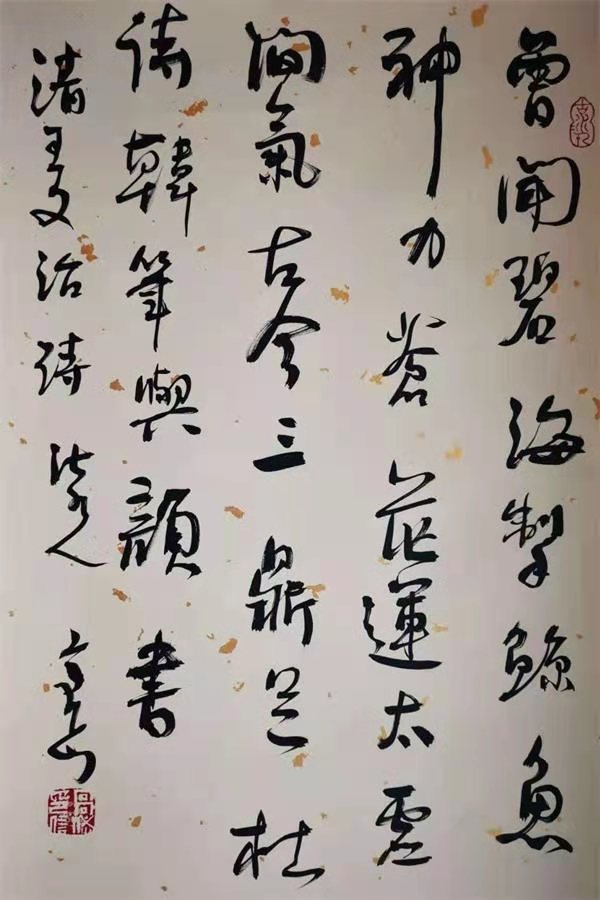 曾聞碧海掣鯨魚
神力蒼茫運太虛
間氣古今三鼎足杜
詩韓筆與顏書
清王文治詩